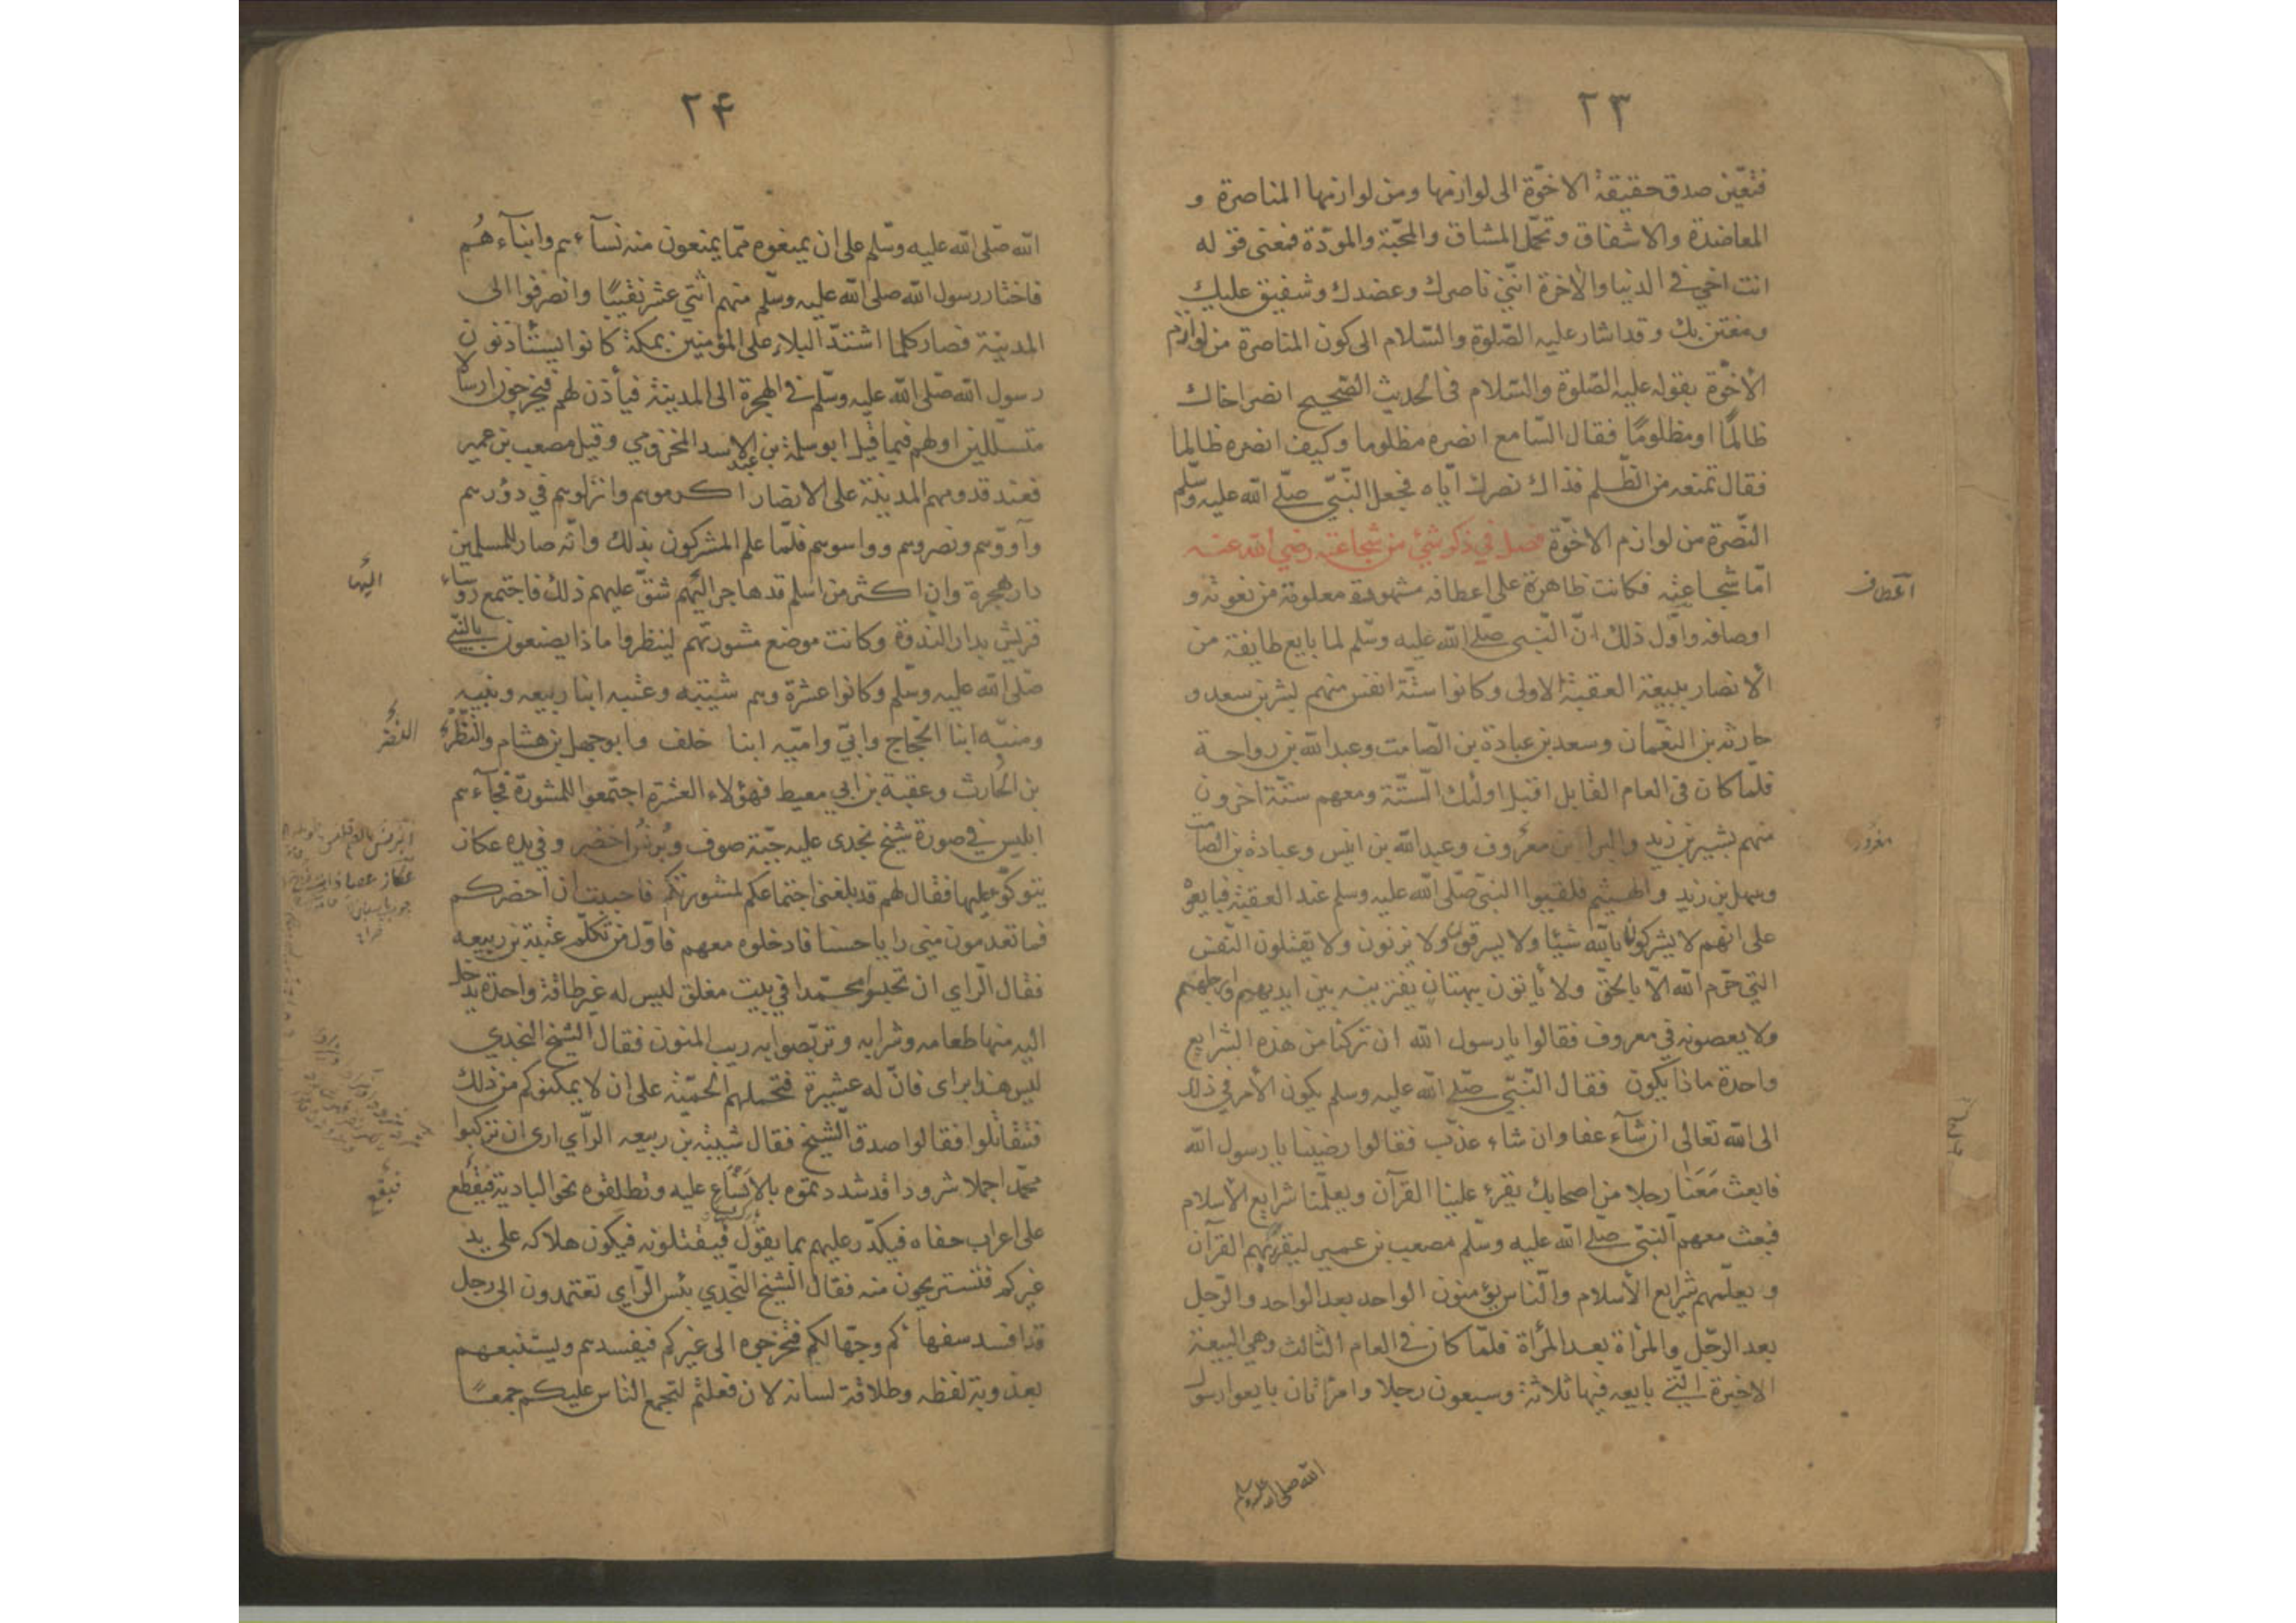 ٢٣
فتعيّن صدق حقيقة الاخوّة الى لوازمها ومن لوازمها المناصرة و
المعاضدة والاشفاق وتحمّل المشاق والمحبّة والمودّة فمعنى قوله
انت اخي في الدنيا والاخرة انّني ناصرك وعضدك وشفيق عليك
ومعتن بك وقد اشار عليه الصّلوة والسّلام الى كون المناصرة من لوازم
الأخوّة بقوله عليه الصّلوة والسّلام في الحديث الصّحيح انصر اخاك
ظالمًا او مظلومًا فقال السّامع انصره مظلوما وكيف انصره ظالما
فقال تمنعه من الظّلم فذاك نصرك ايّاه فجعل النّبيّ صلّى الله عليه وسلّم
النّصرة من لوازم الاخوّة فصل في ذكر شيء من شجاعته رضي الله عنه
امّا شجاعته فكانت ظاهرة على اعطافه مشهودة معلومة من نعوته و
اعطاف
اوصافه واوّل ذلك انّ النّبي صلّى الله عليه وسلم لما بايع طايفة من
الأنصار بيعة العقبة الاولى وكانوا ستّة انفس منهم بشر بن سعد و
حارثه بن النعّمان وسعد بن عبادة بن الصّامت وعبد الله بن رواحة
فلمّا كان في العام القابل اقبل اولئك السّتة ومعهم ستّة اخرون
منهم بشير بن زيد والبرا بن معرُوف وعبد الله بن انيس وعبادة بن الصامت
معرُور
وسهل بن زيد والهيثم فلقيوا النبيّ صلّى الله عليه وسلم عند العقبة فبايعوْ
على انهم لا يشركون بالله شيئا ولا يسرقون ولا يزنون ولا يقتلون النّفس
التي حرّم الله الّا بالحقّ ولا يأتون ببهتان يفترينه بين ايديهم وارجلهم
ولا يعصونه في معروف فقالوا يا رسول الله ان تركنا من هذه الشرايع
واحدة ماذا يكون فقال النّبيّ صلّى الله عليه وسلم يكون الأمر في ذلك
الى الله تعالى ان شآء عفا وان شاء عذّب فقالوا رضينا يا رسول الله
فابعث مَعَنا رجلا من اصحابك يقرء علينا القرآن ويعلّمنا شرايع الأسلام
فبعث معهم النّبيّ صلّى الله عليه وسلّم مصعب بن عمير ليقرئهم القرآن
و يعلّمهم شرايع الأسلام والنّاس يؤمنون الواحد بعد الواحد والرّجل
بعد الرّجل والمرْاة بعد المرْاة فلمّا كان في العام الثالث وهي البيعة
الاخيرة الّتي بايعه فيها ثلاثة وسبعون رجلا وامراتان بايعوا رسول
الله صلى الله عليه وسلم
٢۴
الله صلّى الله عليه وسّلم على ان يمنعوه ممّا يمنعون منه نسآءهم وابنآءهُم
فاختار رسول الله صلى الله عليه وسلّم منهم اثني عشر نقيبًا وانصرفوا الى
المدينة فصار كلما اشتدّ البلاء على المؤمنين بمكة كانوا يستأذنون
رسول الله صلّى الله عليه وسلّم في الهجرة الى المدينة فيأذن لهم فيخرجون ارسالا
متسلّلين اولهم فيما قيل ابو سلمة بن عبد الاسد المخزومي وقيل مصعب بن عمير
فعند قدومهم المدينة على الانصار اكرموهم وانزلوهم في دؤرهم
وآووّهم ونصروهم وواسوهم فلمّا علم المشركون بذلك وانّه صار للمسلمين
دار هجرة وان اكثر من اسلم قد هاجر اليهم شقّ عليهم ذلك فاجتمع رؤساء
اليها
قريش بدار النّدوة وكانت موضع مشورتهم لينظروا ماذا يصنعون بالنّبيّ
صلّى الله عليه وسلّم وكانوا عشرة وهم شيبه وعتبه ابنا ربيعه ونبيه
ومنبّه ابنا الحجّاج وابيّ واميّه ابنا خلف وابو جهل بن هشام والنّظْر
النضر
بن الحارث وعقبة بن ابي معيط فهؤلاء العشرة اجتمعوا للمشورة فجآءهم
ابليس في صورة شيخ نجدي عليه جبّة صوف وبُرنُس اخضر وفي يده عكاز
يتوكّؤ عليها فقال لهم قد بلغني اجتماعكم لمشورتكم فاحببت ان احضركم
فما تعدمون مني رايا حسنا فادخلوه معهم فاوّل من تكلّم عتبة بن ربيعه
فقال الّراي ان تحبسوا محمّدا في بيت مغلق ليس له غير طاقة واحدة يدخل
اليه منها طعامه وشرابه وتربّصوا به ريب المنون فقال الشيخ النجدي
ليس هذا براى فانّ له عشيرة فتحملهم الحميّة على ان لا يمكنوكم من ذلك
فتقاتلوا فقالوا صدق الشيخ فقال شيبة بن ربيعه الرّأي ارى ان تركبوا
محمّدا جملا شرودا قد شددتموه بالأنساع عليه وتطلقوه نحو البادية فيقطع
فيقع
على اعراب حفاه فيكدّر عليهم بما يقوْل فيقتلونه فيكون هلاكه على يد
غيركم فتستريحون منه فقال الشيخ النّجدي بئس الرّاي تعتمدون الى رجل
قد افسد سفهائكم وجهّالكم فتخرجوه الى غيركم فيفسدهم ويستتبعهم
بعذوبة لفظه وطلاقة لسانه لان فعلتم لتجمع الناس عليكم جمعًا